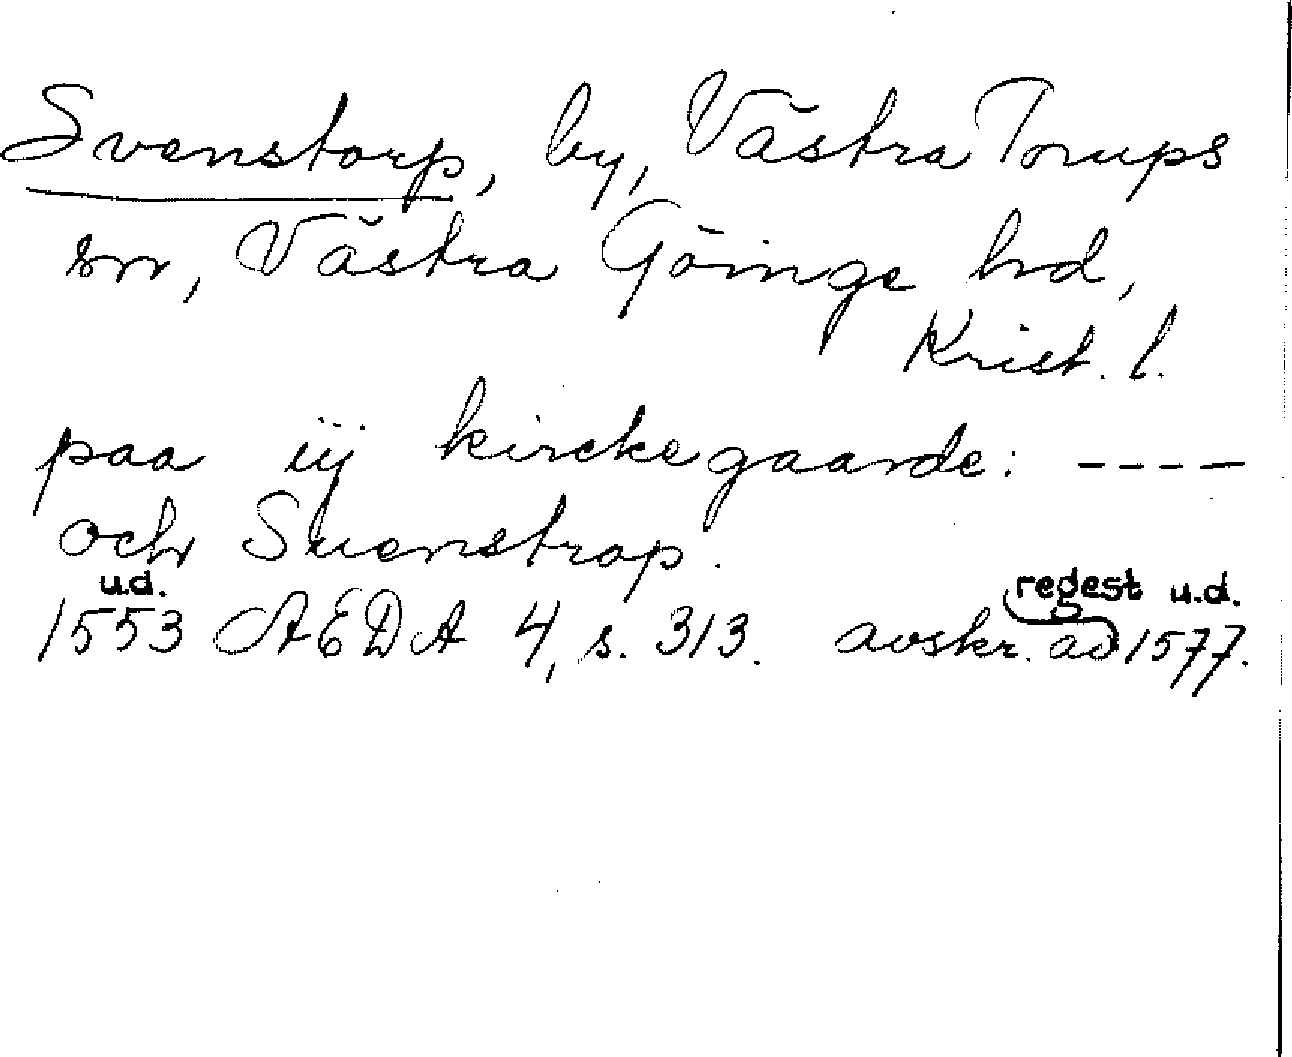 Svenstorp, by, Västra Torups
sn, Västra Göinge hd,
Krist. l.
paa iij kirckegaarde: ----
och Suenstrop.
u.d. regest u.d.
1553 AEDA 4, s. 313. avskr. ad 1577.